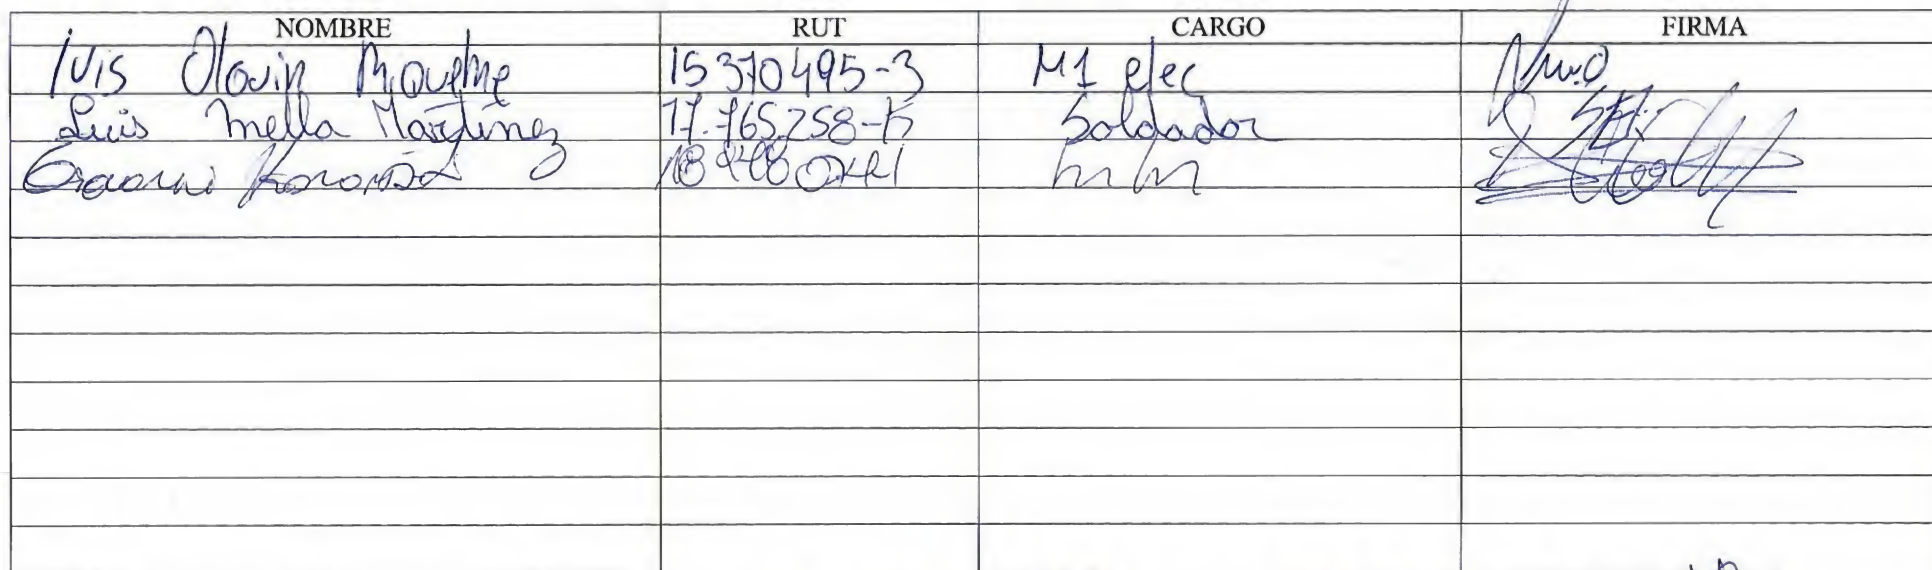 NOMBRE RUT CARGO FIRMA
luis Olavin Riquelme 15370495-3 M1 elec
Luis Mella Martinez 17.765.258-K Soldador
Giovanni m/m